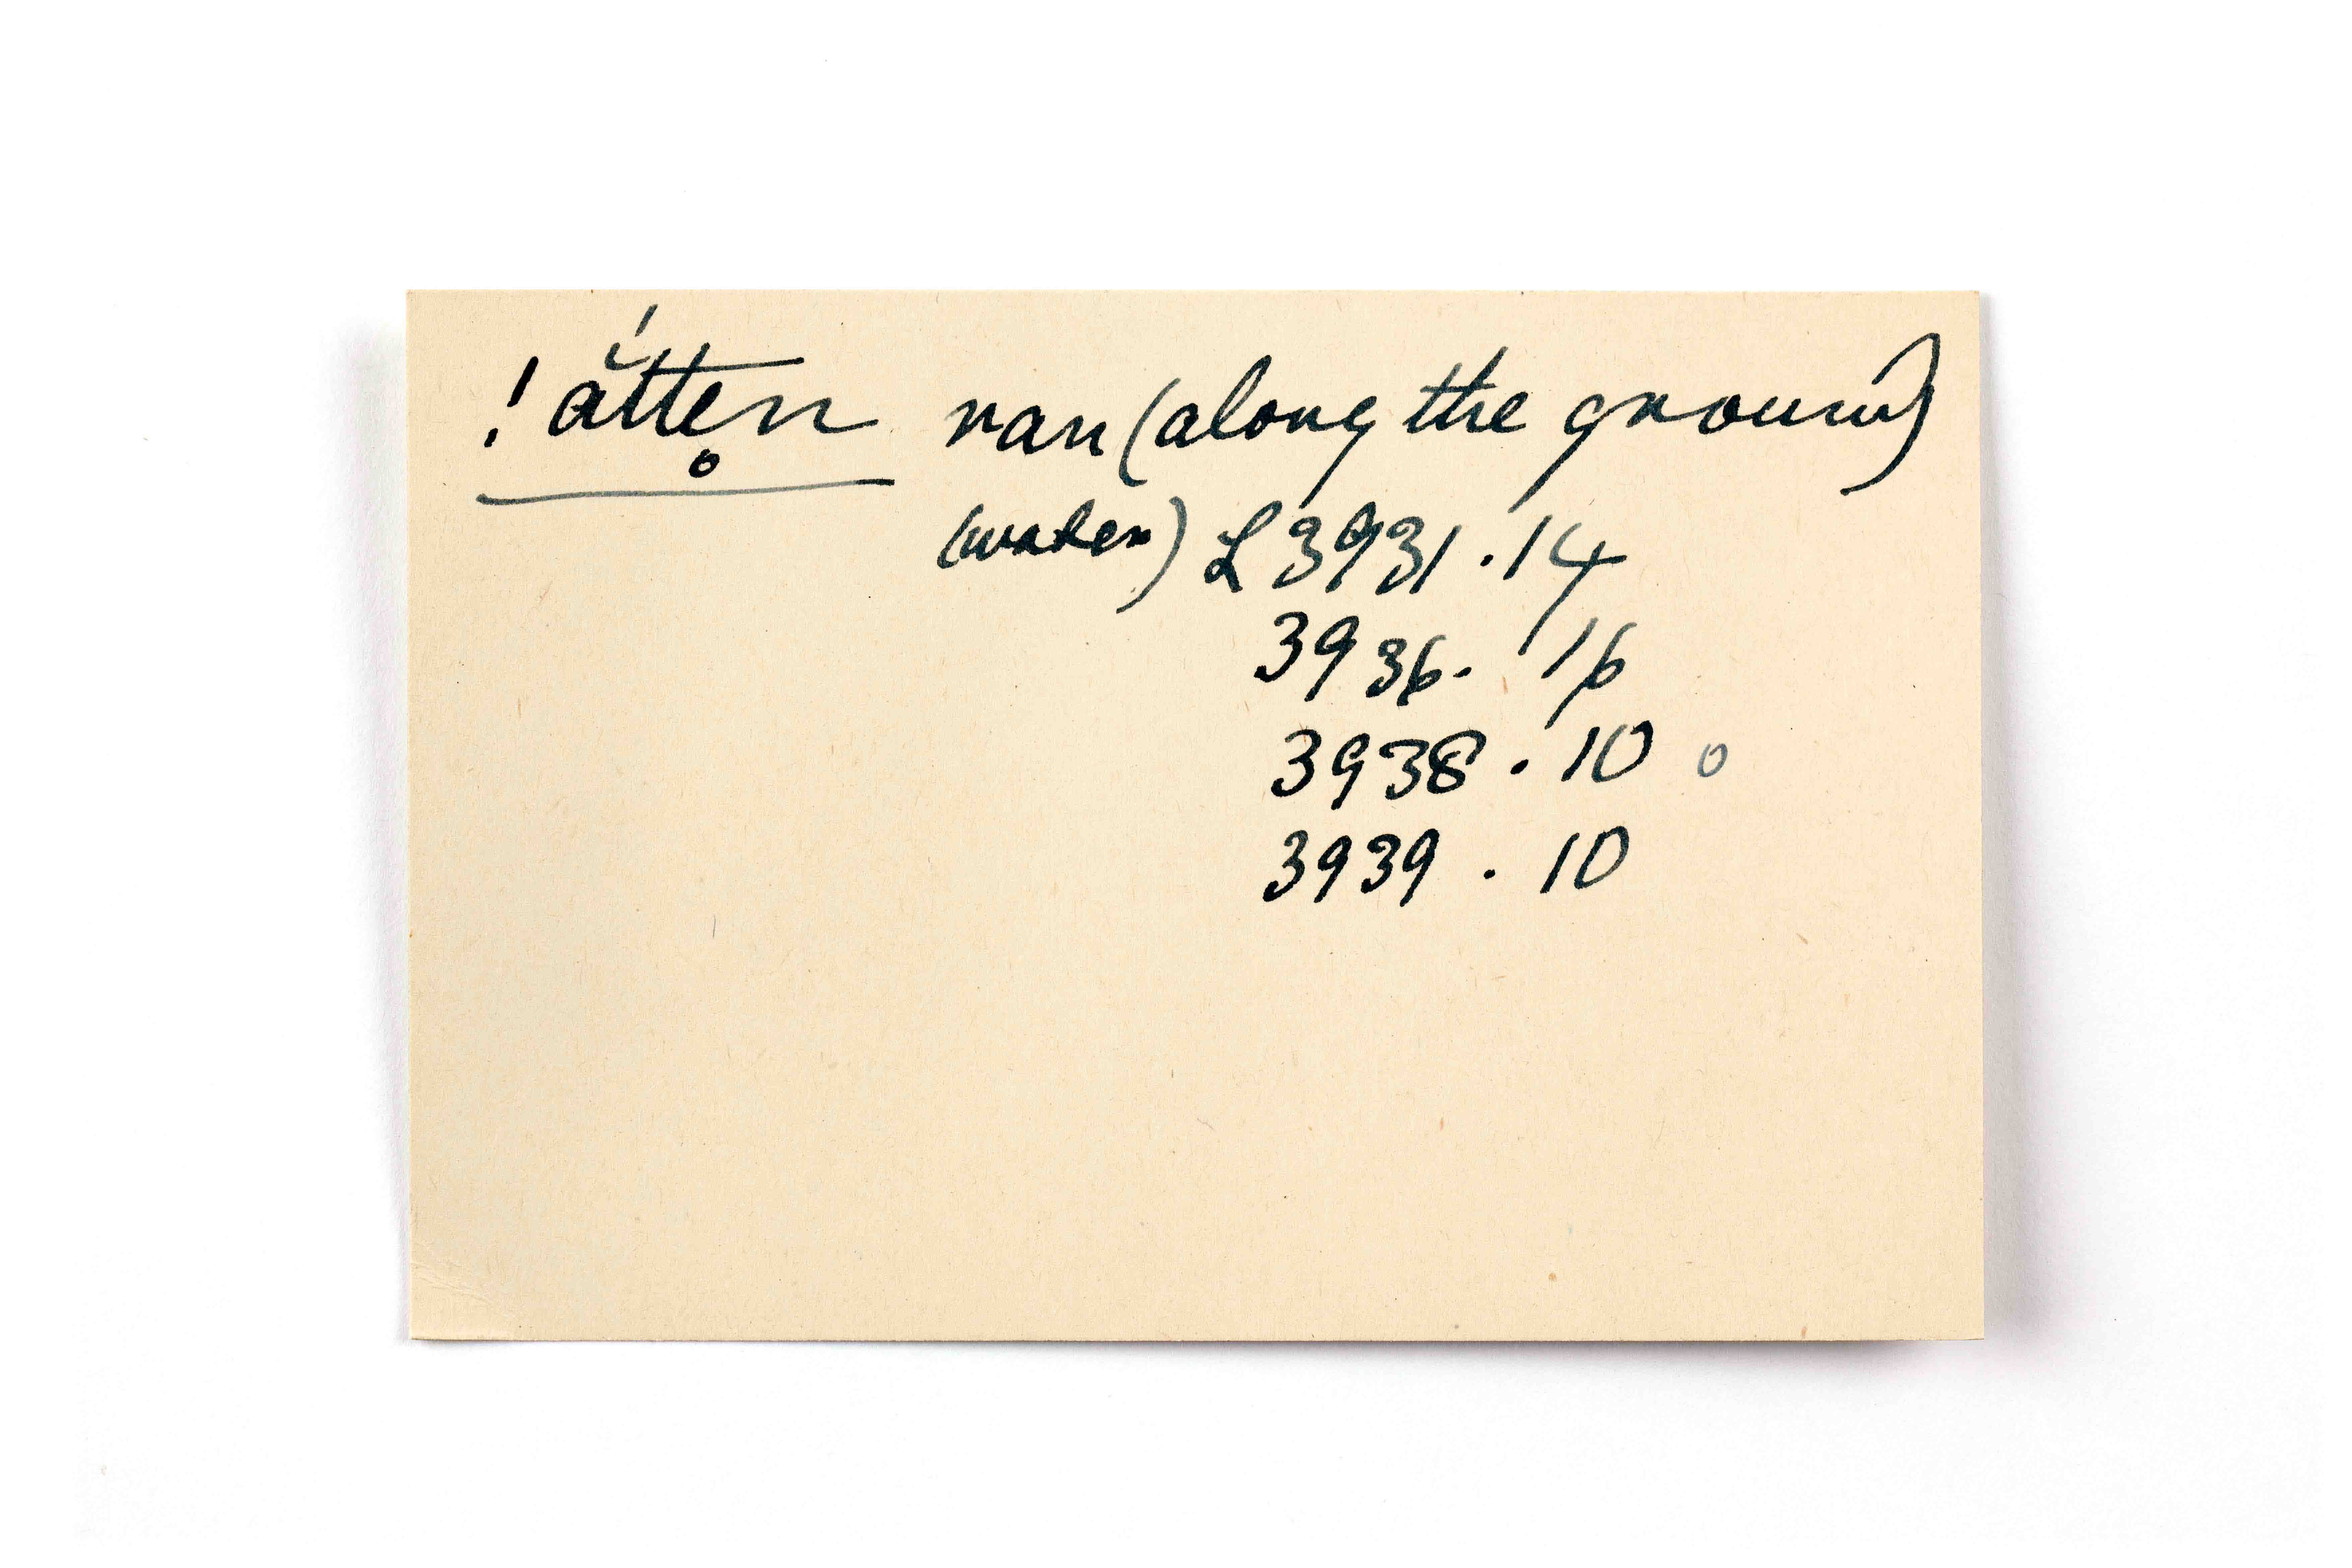 !ắttẹn ran (along the ground)
(water) L 3931.14
3936. '16
3938 . 10 o
3939 . 10